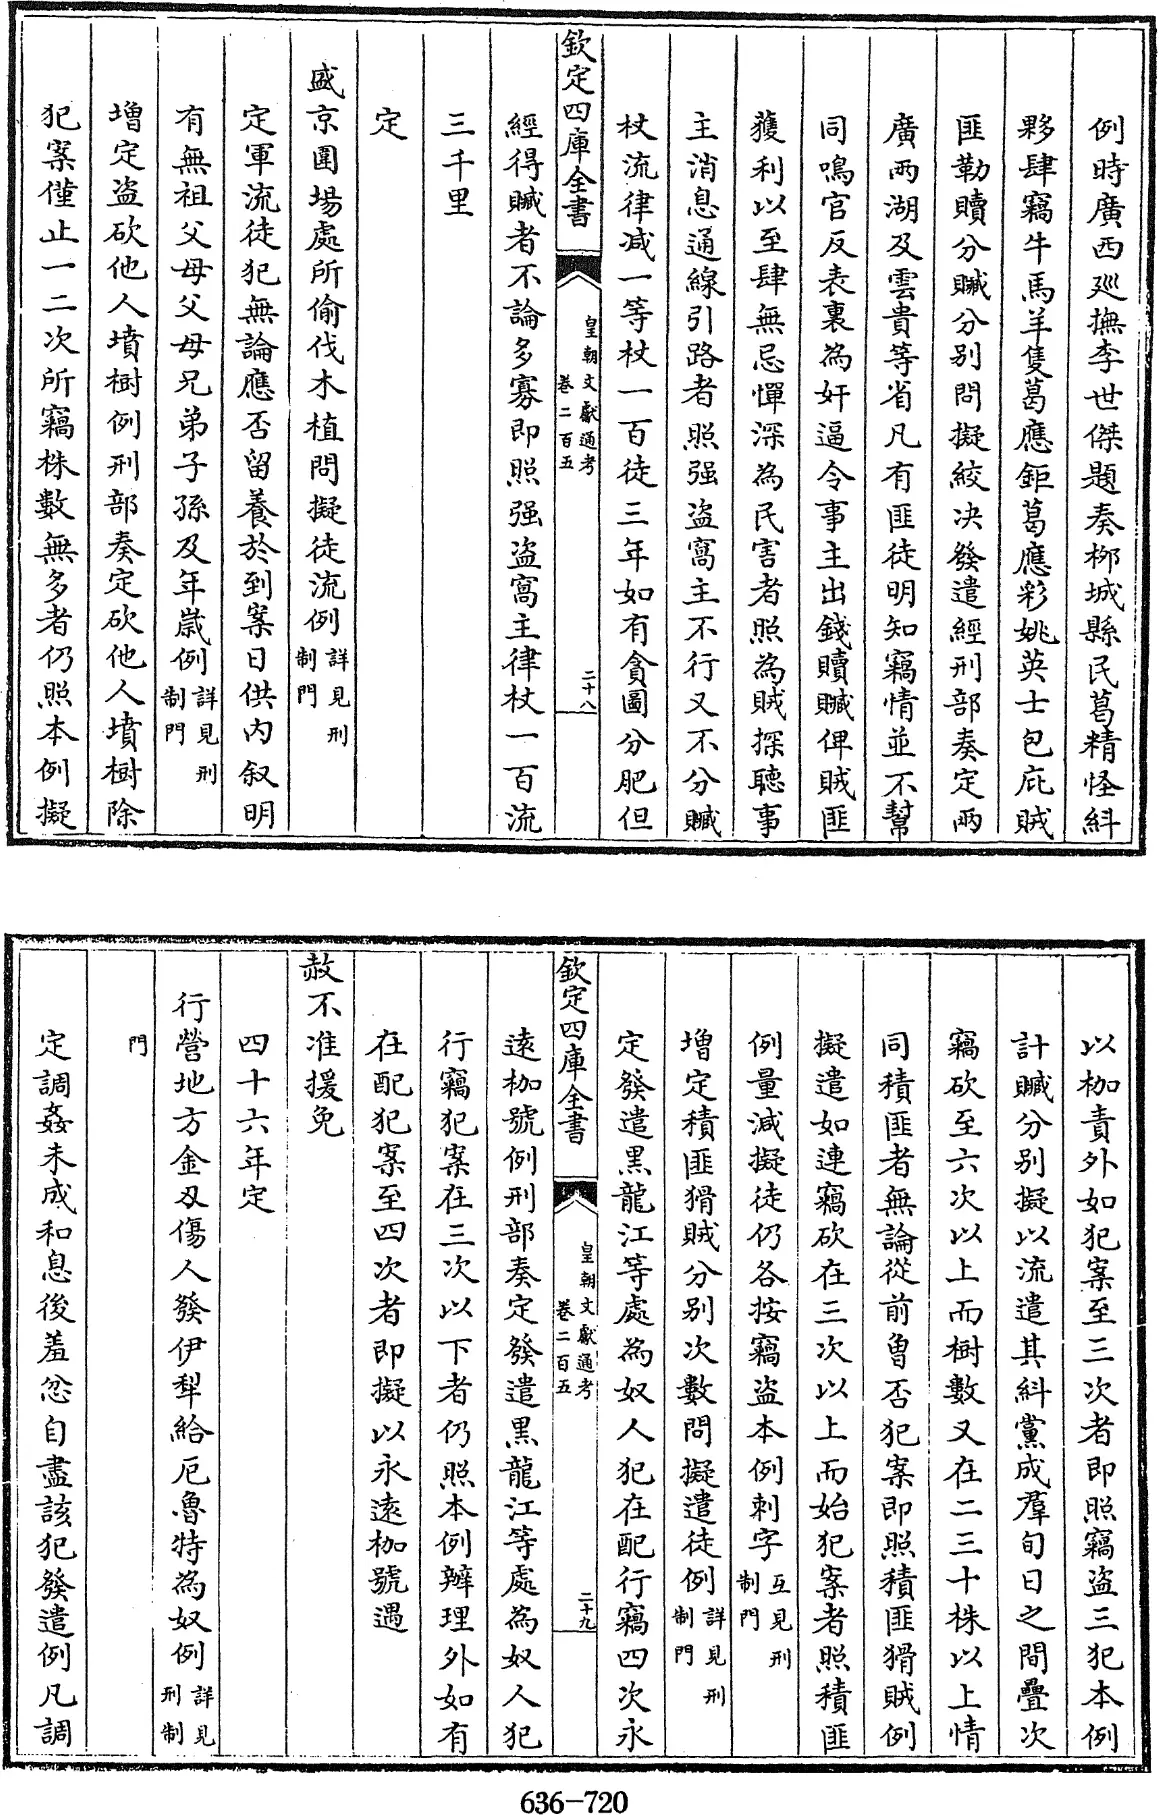 例時廣西廵撫李世傑題奏栁城縣民葛精怪糾
夥肆竊牛馬羊隻葛應鉅葛應彩姚英士包庇賊
匪勒贖分贓分别問擬絞决發遣經刑部奏定兩
廣兩湖及雲貴等省凡有匪徒明知竊情並不幫
同鳴官反表裏為奸逼令事主出錢贖贓俾賊匪
獲利以至肆無忌憚深為民害者照為賊探聽事
主消息通線引路者照强盜窩主不行又不分贓
杖流律减一等杖一百徒三年如有貪圖分肥但
欽定四庫全書
皇朝文獻通考
卷二百五
二十八
經得贓者不論多寡即照强盜窩主律杖一百流
三千里
定
盛京圍場處所偷伐木植問擬徒流例詳見刑制門
定軍流徒犯無論應否留養於到案日供內叙明
有無祖父母父母兄弟子孫及年嵗例詳見刑制門
增定盜砍他人墳樹例刑部奏定砍他人墳樹除
犯案僅止一二次所竊株數無多者仍照本例擬
以枷責外如犯案至三次者即照竊盜三犯本例
計贓分别擬以流遣其糾黨成羣旬日之間疊次
竊砍至六次以上而樹數又在二三十株以上情
同積匪者無論從前曽否犯案即照積匪猾賊例
擬遣如連竊砍在三次以上而始犯案者照積匪
例量減擬徒仍各按竊盜本例刺字互見刑制門
增定積匪猾賊分别次數問擬遣徒例詳見刑制門
定發遣黒龍江等處為奴人犯在配行竊四次永
欽定四庫全書
皇朝文獻通考
卷二百五
二十九
遠枷號例刑部奏定發遣黒龍江等處為奴人犯
行竊犯案在三次以下者仍照本例辦理外如有
在配犯案至四次者即擬以永遠枷號遇
赦不准援免
四十六年定
行營地方金刄傷人發伊犁給厄魯特為奴例詳見刑制
門
定調姦未成和息後羞忿自盡該犯發遣例凡調
636-720